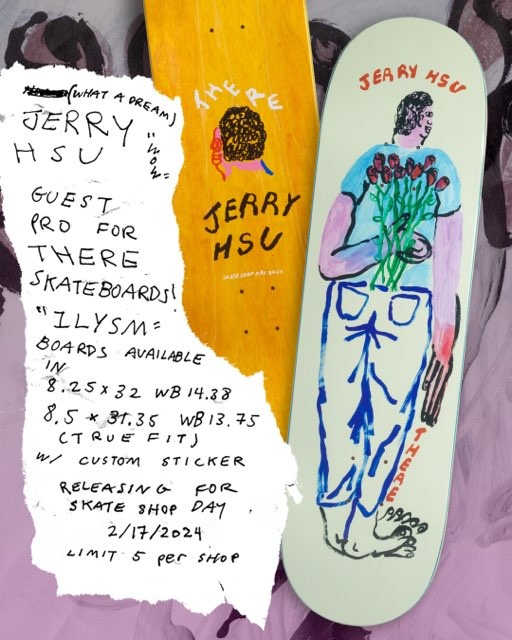 (WHAT A DREAM)
JERRY
HSU
"WOW"
GUEST
PRO FOR
THERE
SKATEBOARDS!
"ILYSM"
BOARDS AVAILABLE
IN
8.25 x 32 WB 14.38
8.5 x 31.35 WB 13.75
(TRUE FIT)
W/ CUSTOM STICKER
RELEASING FOR
SKATE SHOP DAY
2/17/2024
LIMIT 5 PER SHOP
THERE
JERRY
HSU
SKATE SHOP DAY 2024
JERRY HSU
THERE